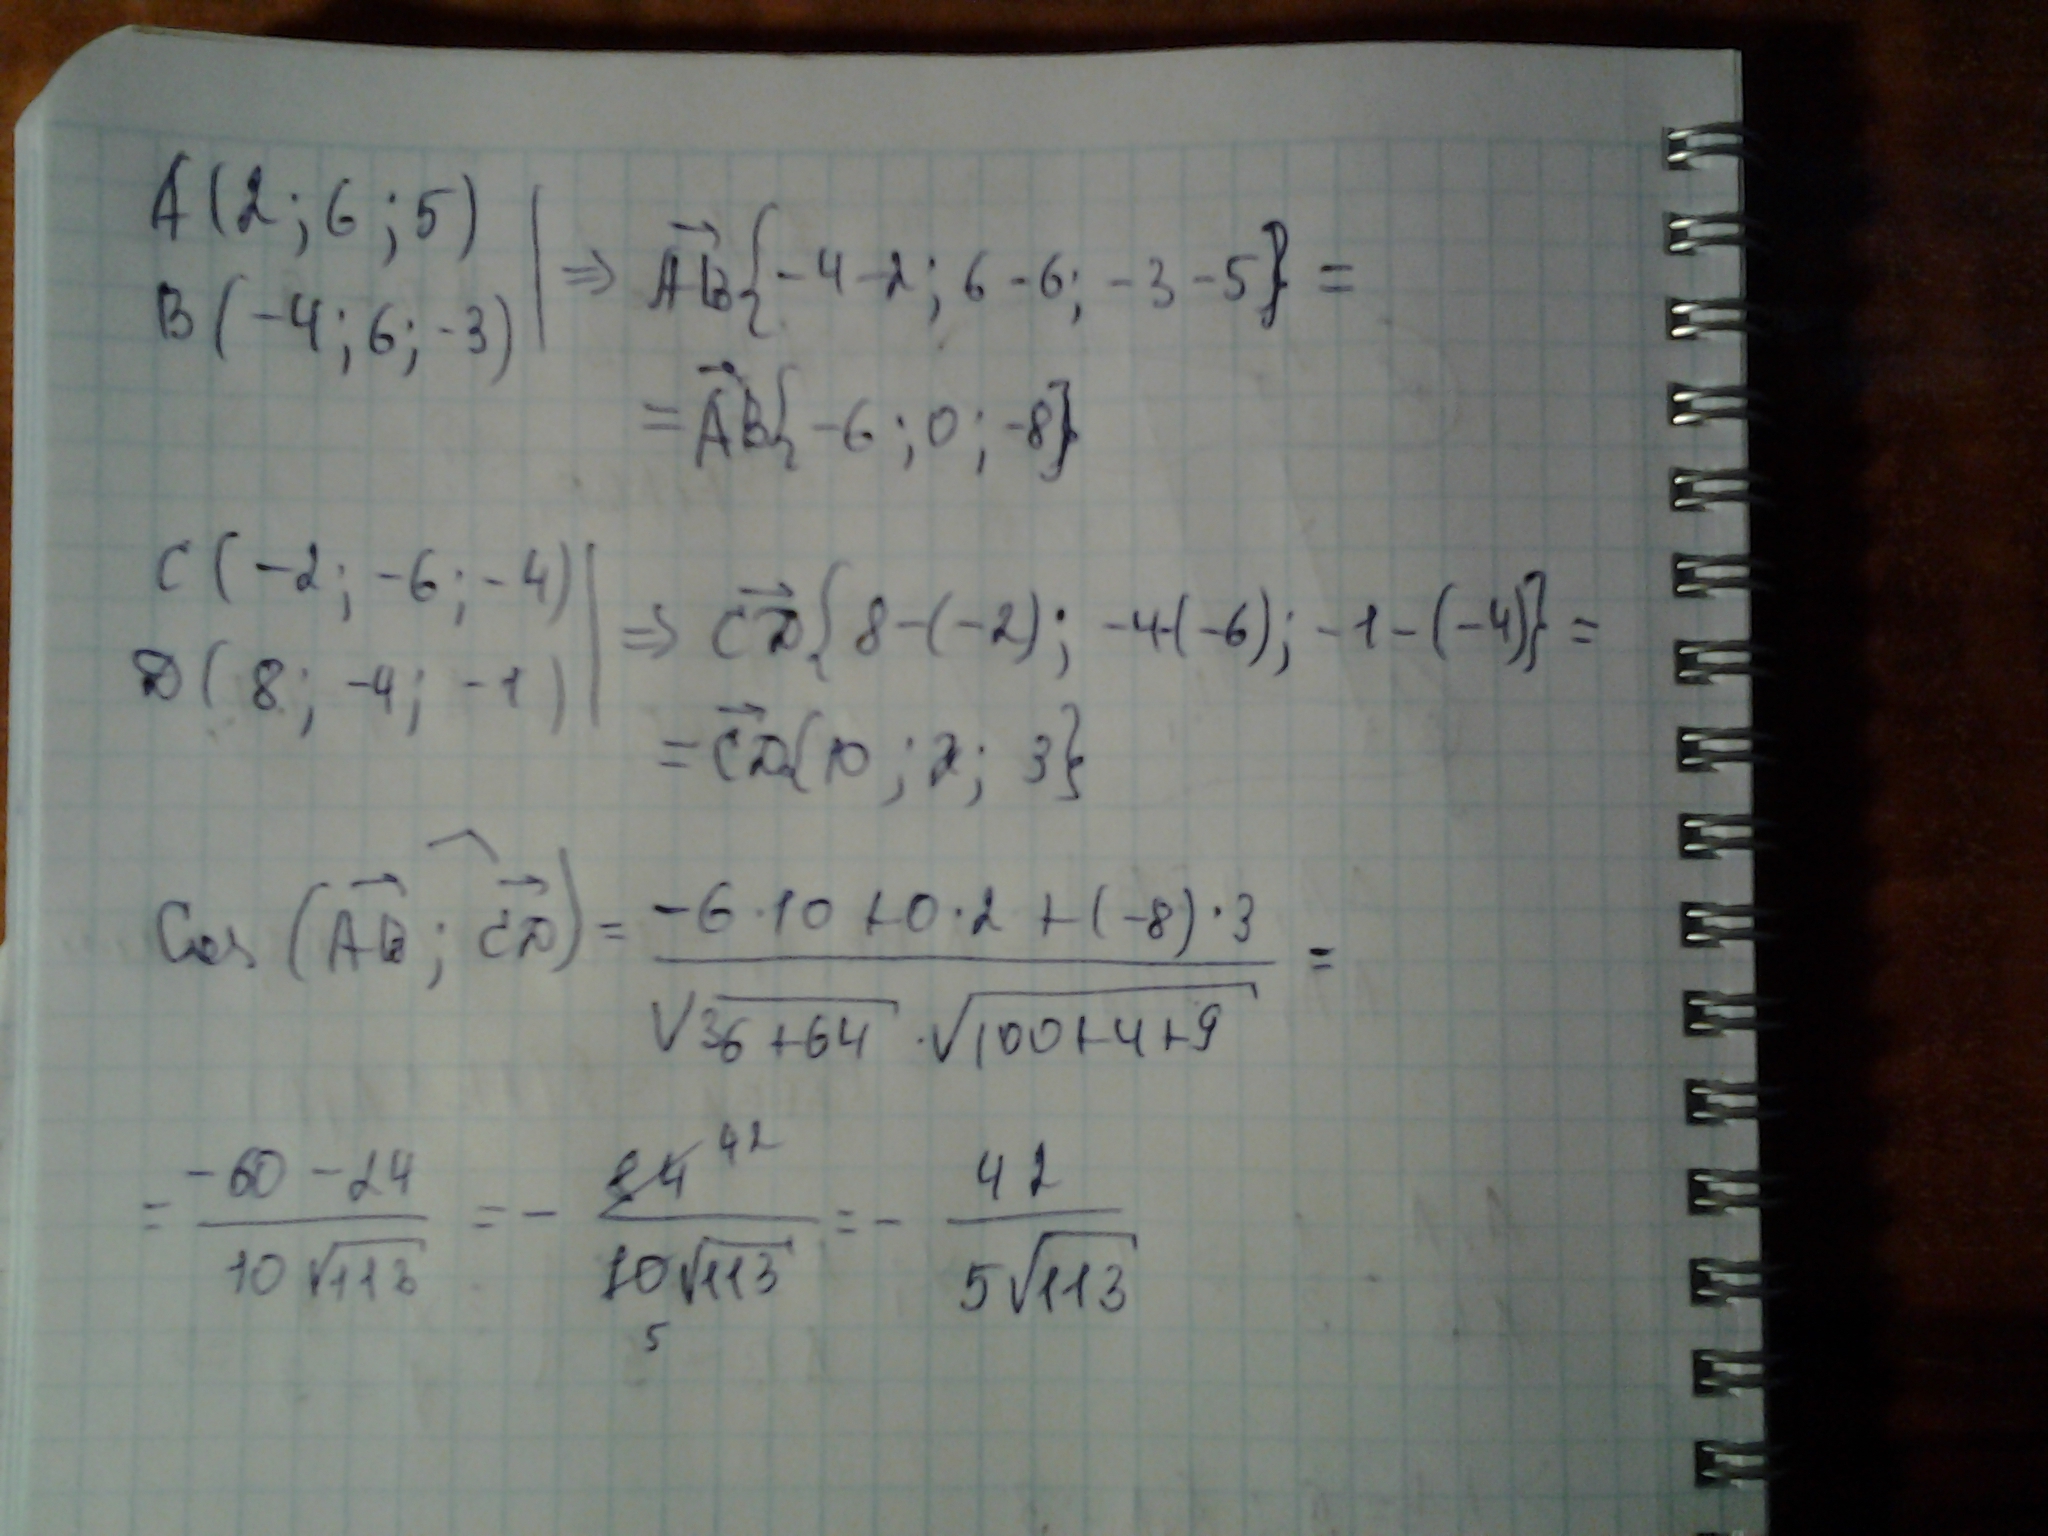 A(2;6;5)
B(-4;6;-3) | ⇒ AB{-4-2;6-6;-3-5} =
= AB{-6;0;-8}
C(-2;-6;-4)
D(8;-4;-1) | ⇒ CD{8-(-2);-4-(-6);-1-(-4)} =
= CD{10;2;3}
Cos(AB;CD) = (-6·10+0·2+(-8)·3)/(√36+64·√100+4+9) =
= (-60-24)/(10√113) = - (84 42)/(10√113 5) = - 42/(5√113)